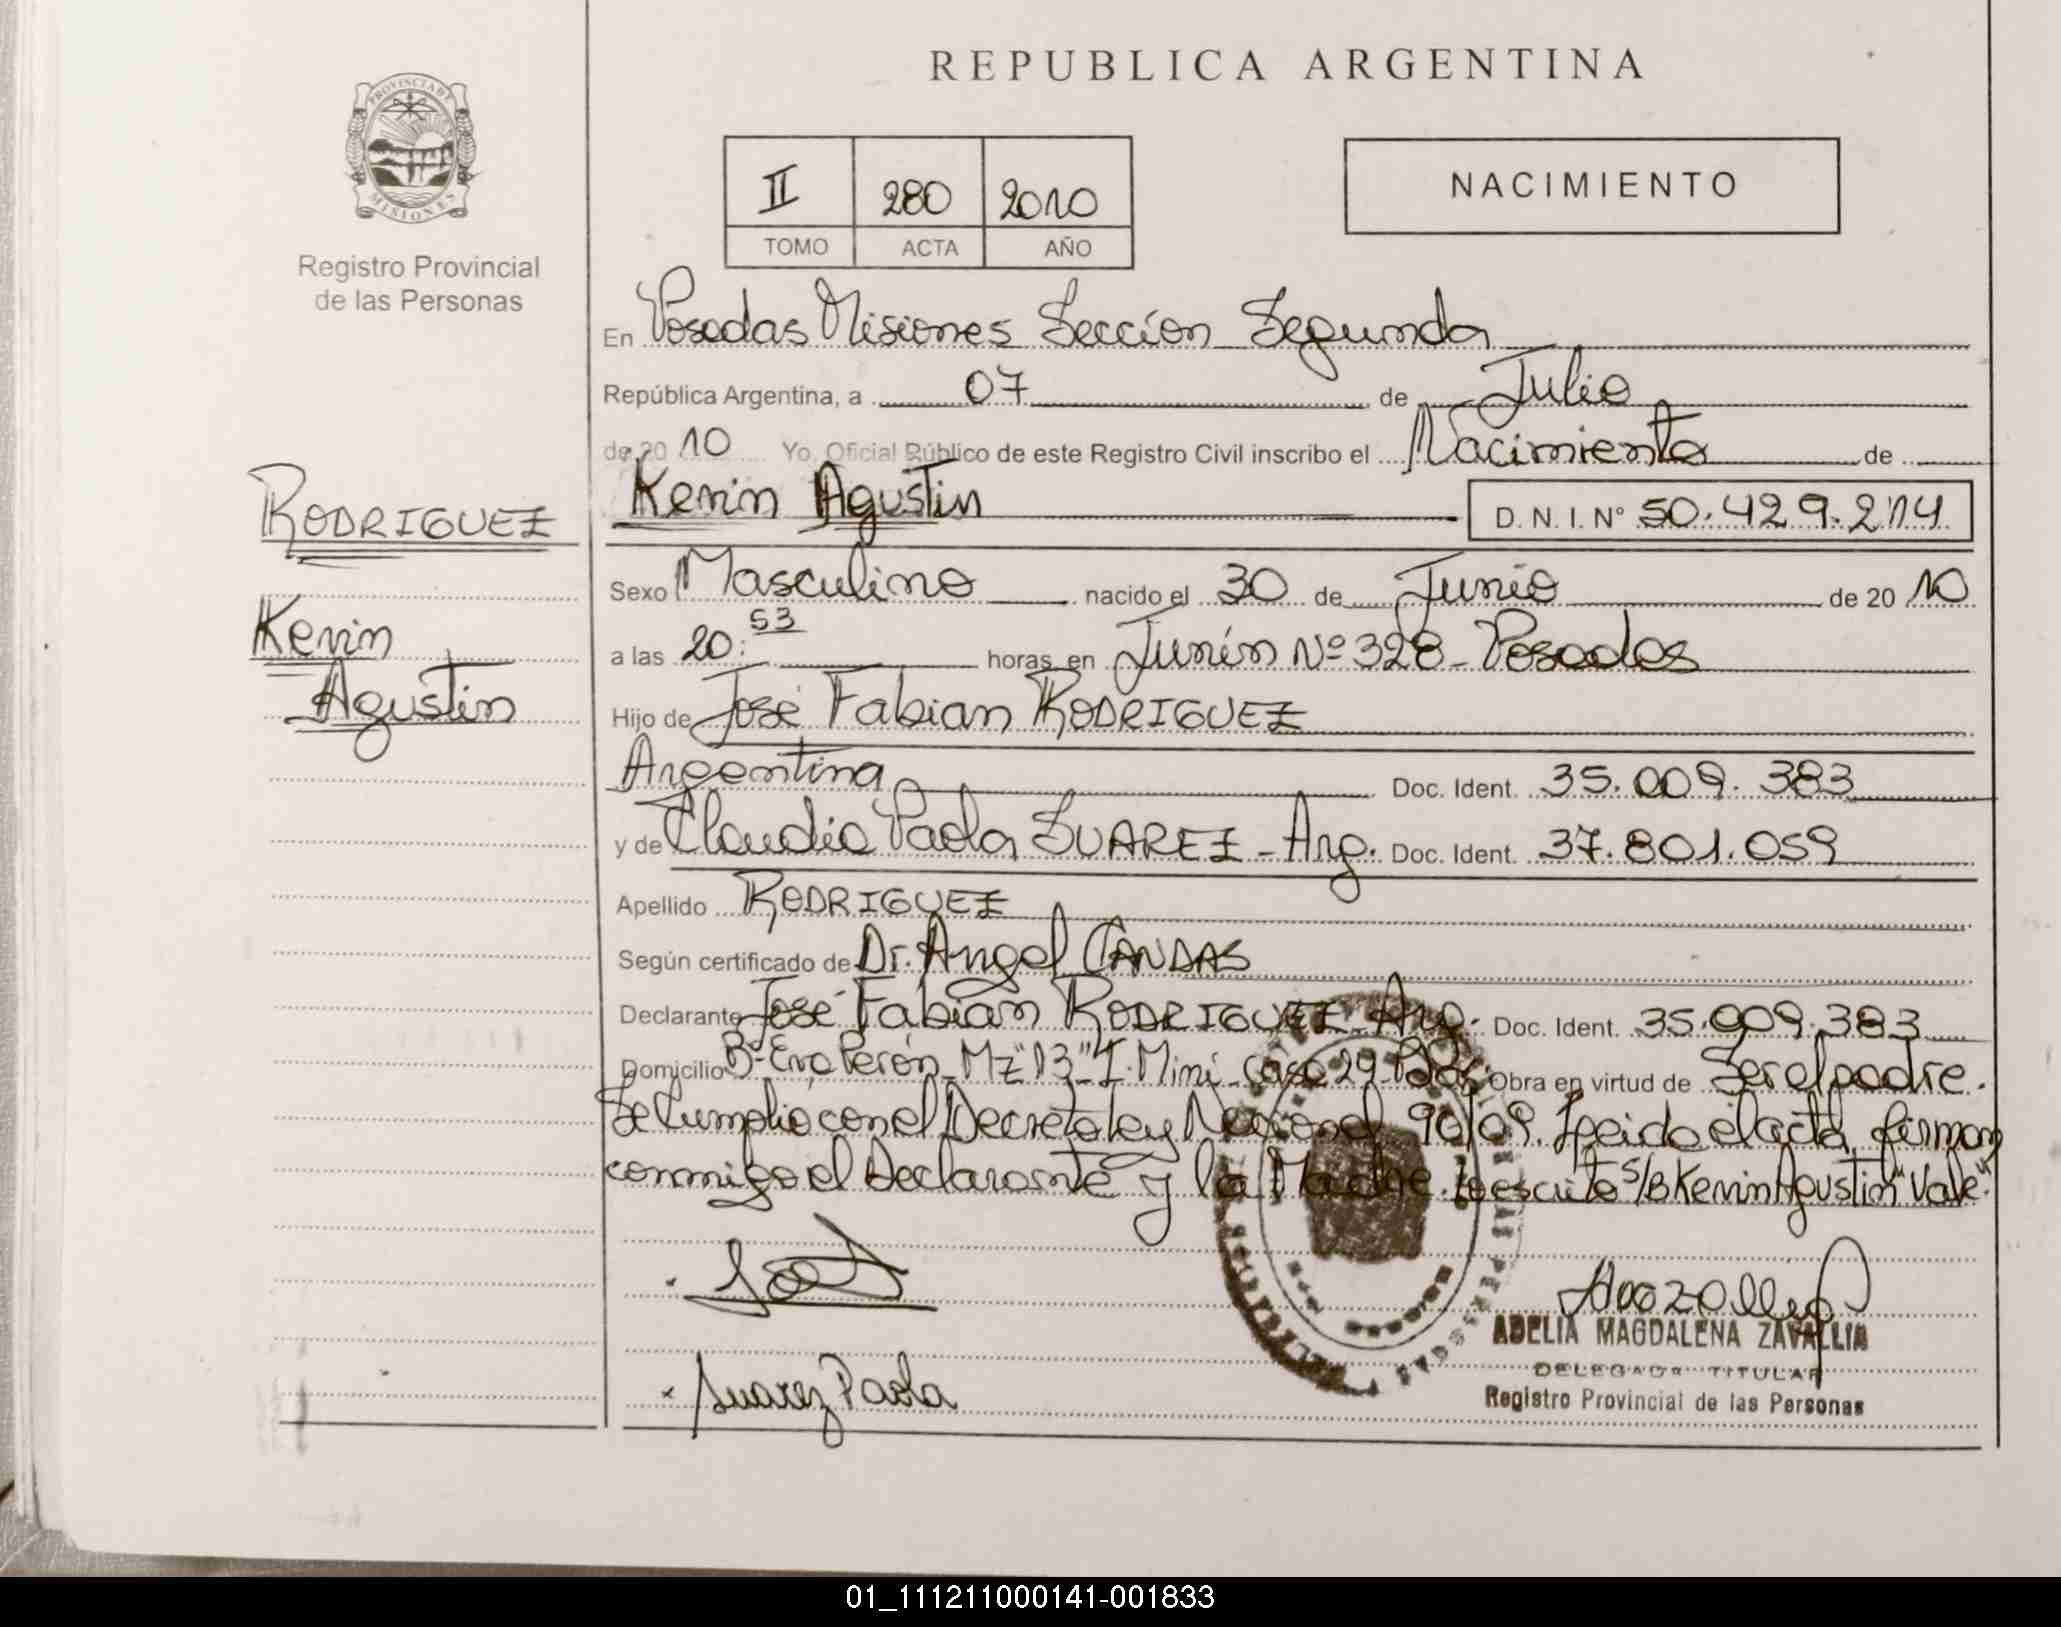 REPUBLICA ARGENTINA
PROVINCIA DE MISIONES
Registro Provincial
de las Personas
II 280 2010
TOMO ACTA AÑO
NACIMIENTO
En Posadas Misiones Sección Segunda
República Argentina, a 07 de Julio
de 2010 Yo, Oficial Público de este Registro Civil inscribo el Nacimiento de
RODRIGUEZ
Kevin
Agustin
Kevin Agustin D.N.I. Nº 50.429.214
Sexo Masculino nacido el 30 de Junio de 2010
a las 20:53 horas, en Junín Nº 328 - Posadas
Hijo de José Fabian RODRIGUEZ
Argentina Doc. Ident. 35.009.383
y de Claudia Paola SUAREZ - Arg. Doc. Ident. 37.801.059
Apellido RODRIGUEZ
Según certificado de Dr. Angel CANDAS
Declarante José Fabian RODRIGUEZ - Arg. Doc. Ident. 35.009.383
Domicilio Bº Eva Perón - Mz "13" - I. Mini - Casa 29 - Pdas. Obra en virtud de Ser el padre.
Se Cumplio con el Decreto Ley Nacional 90/09. Leido el acta firman
conmigo el Declarante y la Madre. Lo escrito S/B Kevin Agustin "Vale".
Suarez Paola
ADELIA MAGDALENA ZAVALLIA
DELEGADA TITULAR
Registro Provincial de las Personas
01_111211000141-001833